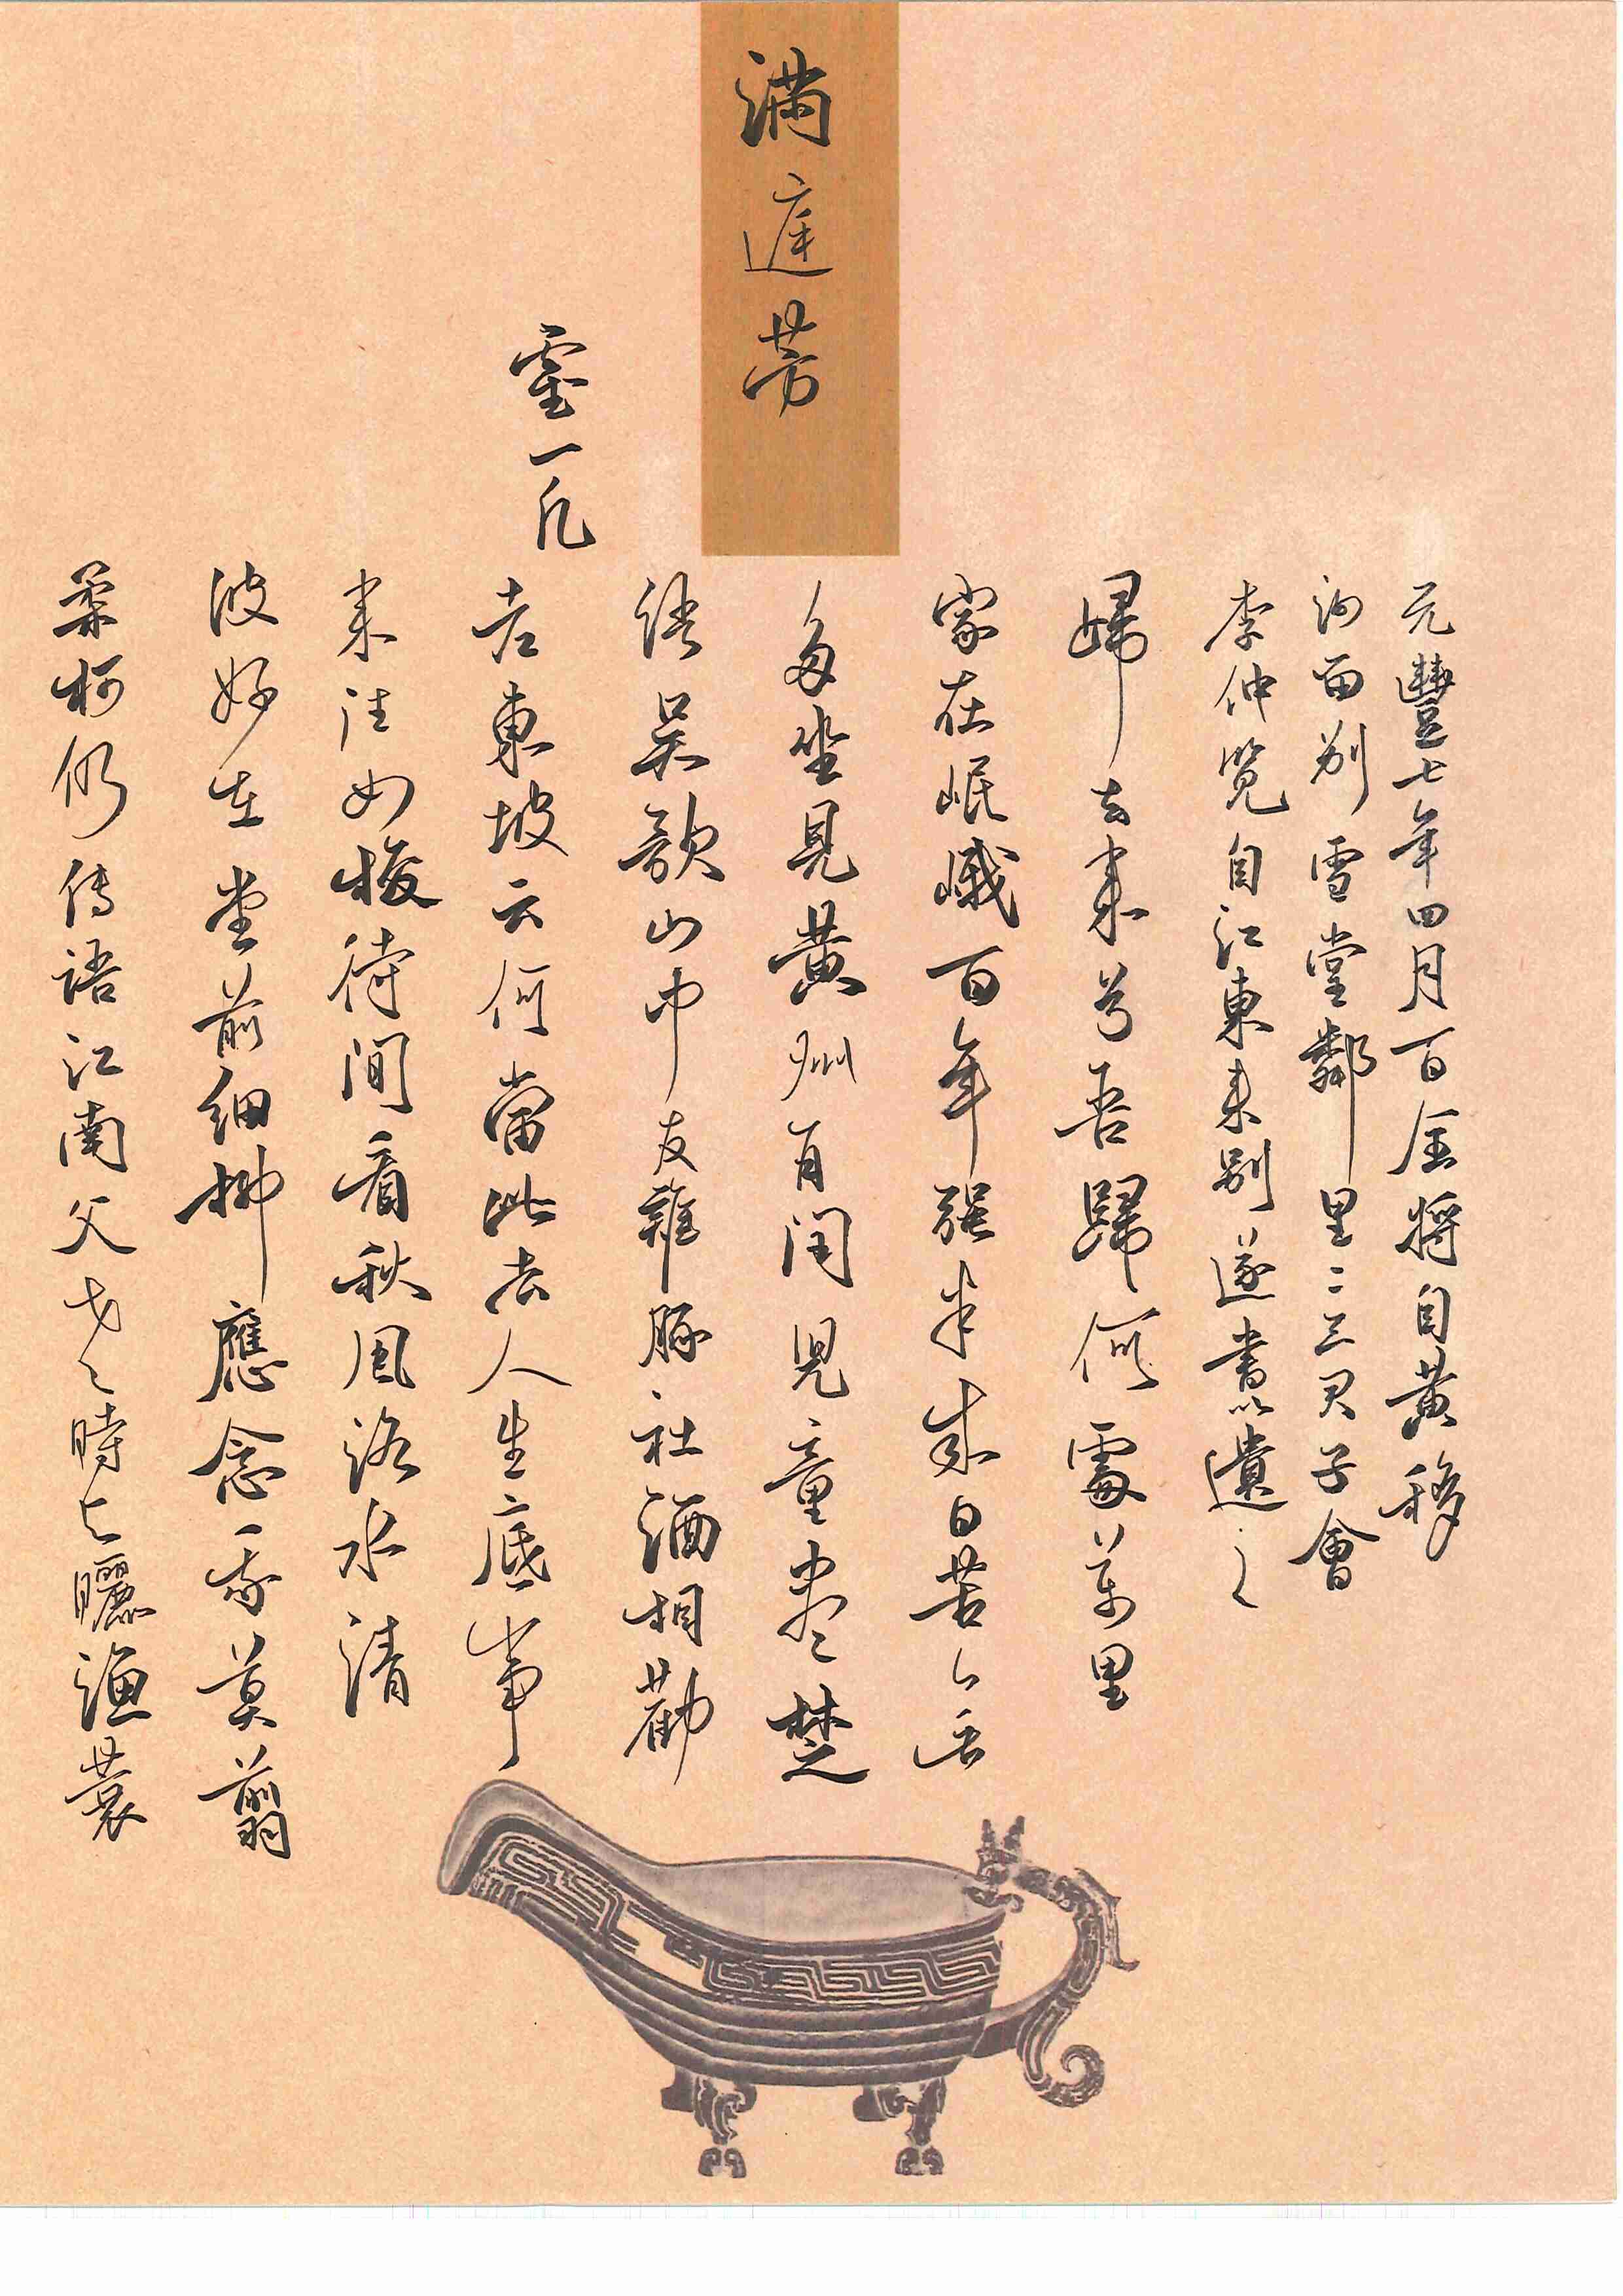 满庭芳
元豐七年四月一日余將自黃移
汝留别雪堂鄰里二三君子會
李仲览自江東来别遂書以遺之
歸去来兮吾歸何處萬里
家在岷峨百年强半来日苦無
多坐見黃州再闰兒童盡楚
語吴歌山中友雞豚社酒相勸
老東坡云何當此去人生底事
来往如梭待閒看秋風洛水清
波好在堂前細柳應念我莫翦
柔柯仍传語江南父老時与曬漁蓑
一凡